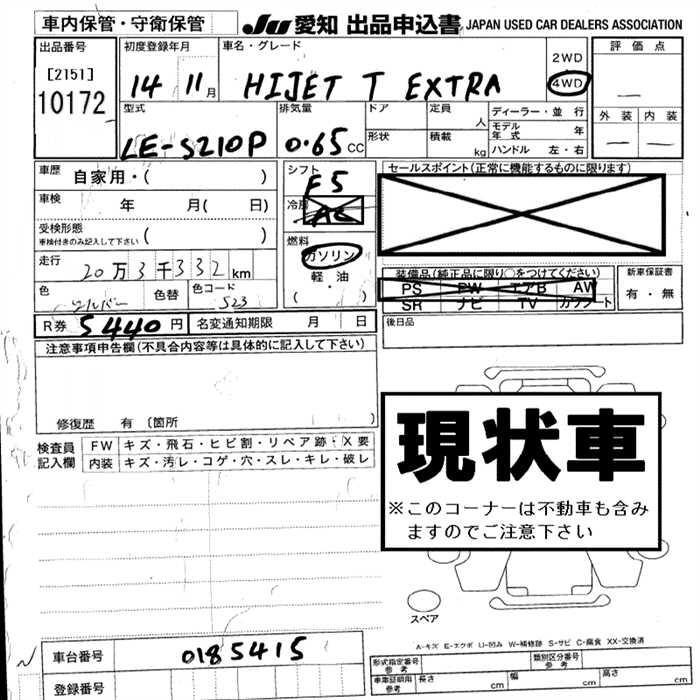 車内保管・守衛保管
JU 愛知 出品申込書 JAPAN USED CAR DEALERS ASSOCIATION
出品番号
[2151]
10172
初度登録年月
14 11 月
車名・グレード
HIJET T EXTRA
2WD
4WD
評価点
—
外装 内装
— —
型式
LE-S210P
排気量
0.65 CC
ドア
形状
定員 人
積載 kg
ディーラー・並行
モデル年式 年
ハンドル 左・右
車歴 自家用・( )
車検 年 月( 日)
受検形態
車検付きのみ記入して下さい ( )
走行 20万3千332 km
色 シルバー 色替 色コード S23
シフト
F5
冷房
AC
燃料
ガソリン
軽・油
( )
セールスポイント(正常に機能するものに限ります)
装備品(純正品に限り○をつけてください)
PS PW エアB AW
SR ナビ TV カワシート
新車保証書
有・無
R券 5440 円 名変通知期限 月 日
後日品
注意事項申告欄(不具合内容等は具体的に記入して下さい)
修復歴 有 〔箇所 〕
検査員記入欄
FW キズ・飛石・ヒビ割・リペア跡・X要
内装 キズ・汚レ・コゲ・穴・スレ・キレ・破レ
現状車
※このコーナーは不動車も含み
ますのでご注意下さい
スペア
A-キズ E-エクボ U-凹み W-補修跡 S-サビ C-腐食 XX-交換済
車台番号 0185415
登録番号
形式指定番号 参考
類別区分番号 参考
車庫証明用 参考 長さ cm 幅 cm 高さ cm